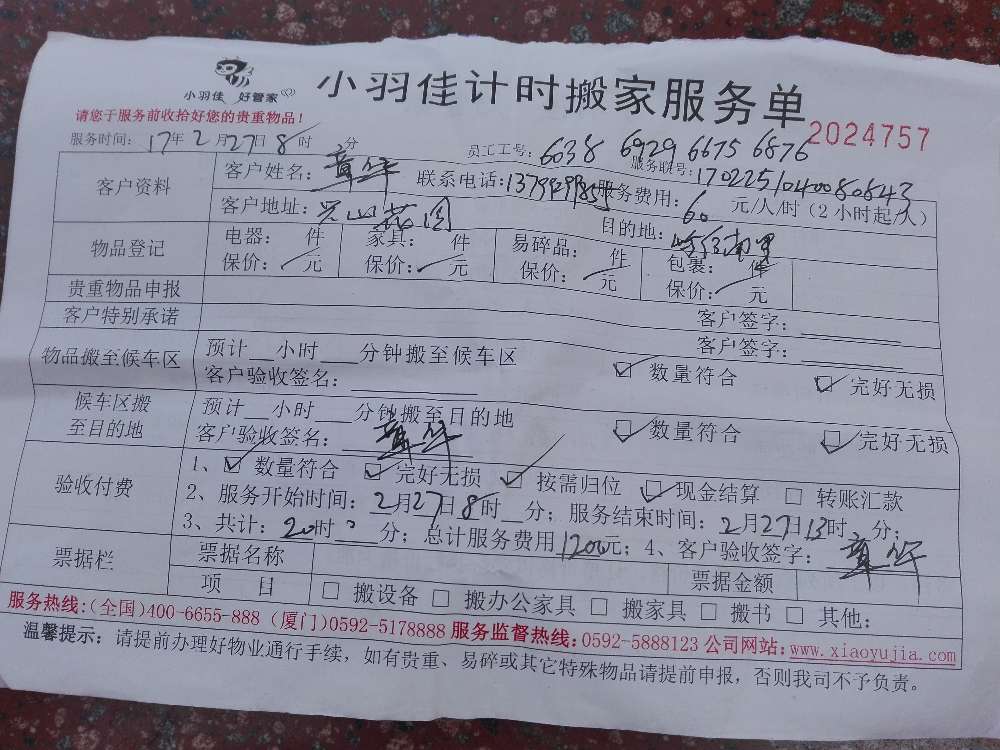 小羽佳 好管家
小羽佳计时搬家服务单
请您于服务前收拾好您的贵重物品！
2024757
服务时间：17年2月27日8时 分 员工工号：6038 6929 6675 6876
服务联号：
客户资料 客户姓名：章华 联系电话： 服务费用：60元/人/时（2小时起/人）
客户地址： 花园 目的地：
物品登记 电器： 件 家具： 件 易碎品： 件 包裹： 件
保价： 元 保价： 元 保价： 元 保价： 元
贵重物品申报 客户签字：
客户特别承诺 客户签字：
物品搬至候车区 预计 小时 分钟搬至候车区 数量符合 完好无损
客户验收签名：
候车区搬至目的地 预计 小时 分钟搬至目的地 数量符合 完好无损
客户验收签名：章华
验收付费 1、 数量符合 完好无损 按需归位 现金结算 转账汇款
2、服务开始时间：2月27日8时 分；服务结束时间：2月27日13时 分；
3、共计：20时 分；总计服务费用1200元；4、客户验收签字：章华
票据栏 票据名称 票据金额
项 目 搬设备 搬办公家具 搬家具 搬书 其他：
服务热线：（全国）400-6655-888（厦门）0592-5178888 服务监督热线：0592-5888123 公司网站：www.xiaoyujia.com
温馨提示：请提前办理好物业通行手续，如有贵重、易碎或其它特殊物品请提前申报，否则我司不予负责。